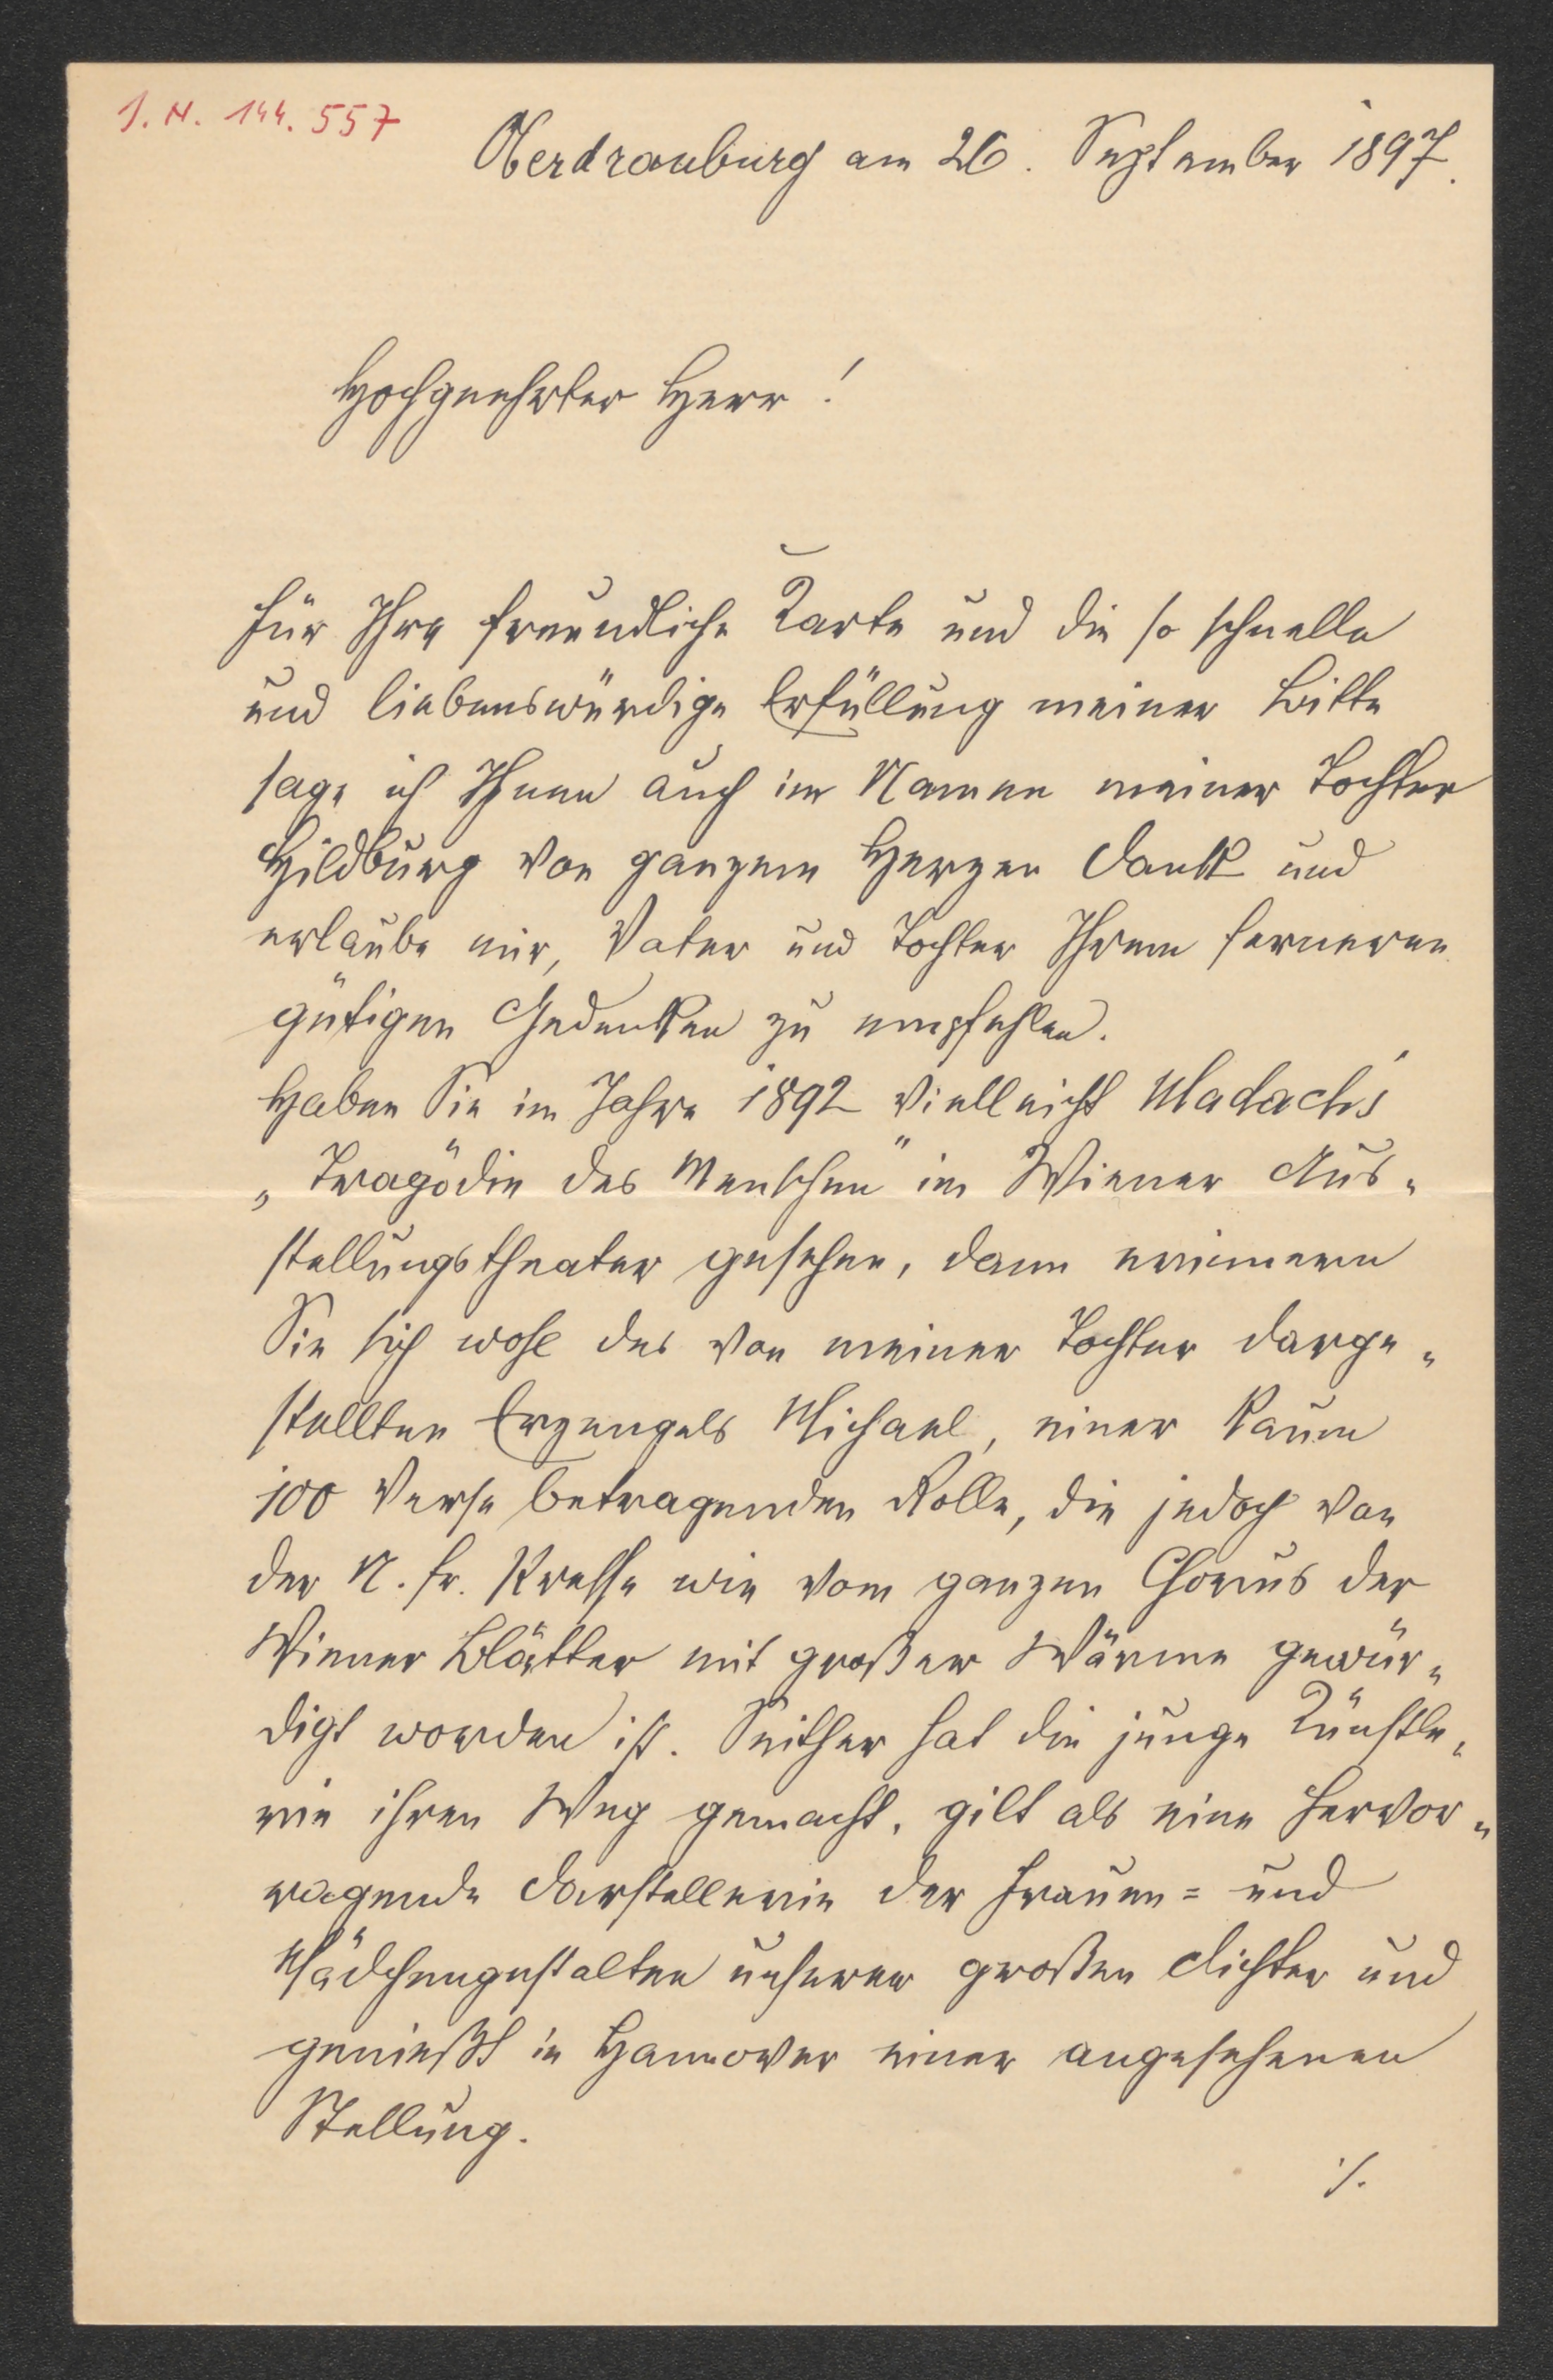 I. N. 144.557
Oberdrauburg am 26. September 1897.
Hochgeehrter Herr!
Für Ihre freundliche Karte und die so schnelle
und liebenswürdige Erfüllung meiner Bitte
sage ich Ihnen auch im Namen meiner Tochter
Hildburg von ganzem Herzen Dank und
erlaube mir, Vater und Tochter Ihrem ferneren
gütigen Gedenken zu empfehlen.
Haben Sie im Jahre 1892 vielleicht Madach's
„Tragödie des Menschen" im Wiener Aus-
stellungstheater gesehen, dann erinnern
Sie sich wohl des von meiner Tochter darge-
stellten Erzengels Michael, einer kaum
100 Verse betragenden Rolle, die jedoch von
der N. fr. Presse wie vom ganzen Chorus der
Wiener Blätter mit großer Wärme gewür-
digt worden ist. Seither hat die junge Künstle-
rin ihren Weg gemacht, gilt als eine hervor-
ragende Darstellerin der Frauen= und
Mädchengestalten unserer großen Dichter und
genießt in Hannover einer angesehenen
Stellung.
./.